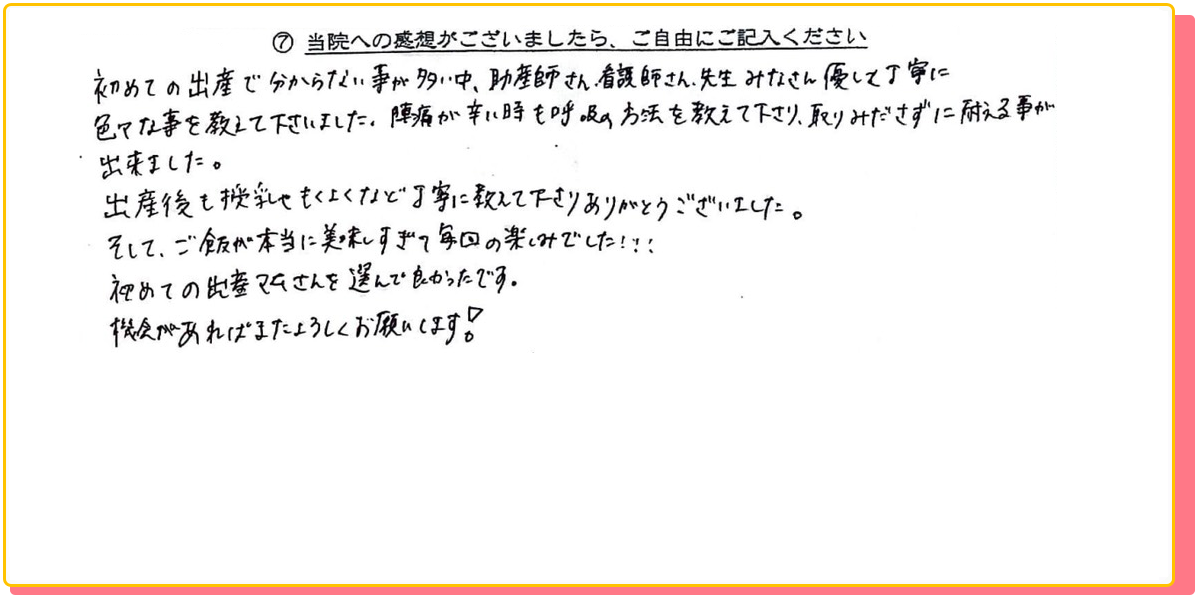 ⑦ 当院への感想がございましたら、ご自由にご記入ください
初めての出産で分からない事が多い中、助産師さん、看護師さん、先生みなさん優しく丁寧に
色々な事を教えて下さいました。陣痛が辛い時も呼吸の方法を教えて下さり、取りみださずに耐える事が
出来ました。
出産後も授乳やもくよくなど丁寧に教えて下さりありがとうございました。
そして、ご飯が本当に美味しすぎて毎回の楽しみでした!!!
初めての出産マムさんを選んで良かったです。
機会があればまたよろしくお願いします!